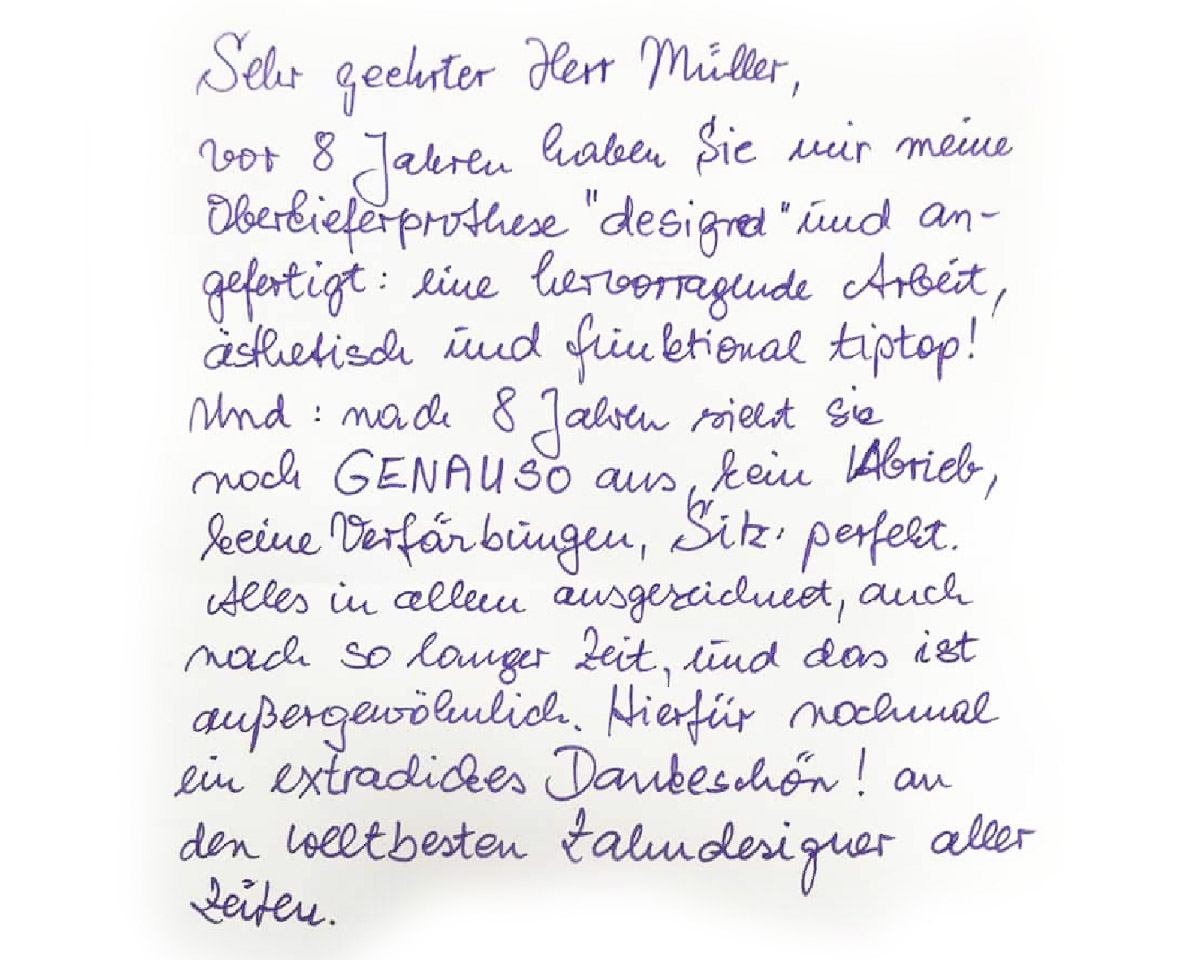 Sehr geehrter Herr Müller,
vor 8 Jahren haben Sie mir meine
Oberkieferprothese "designed" und an-
gefertigt: eine hervorragende Arbeit,
ästhetisch und funktional tiptop!
Und: nach 8 Jahren sieht sie
noch GENAUSO aus, kein Abrieb,
keine Verfärbungen, Sitz: perfekt.
Alles in allem ausgezeichnet, auch
nach so langer Zeit, und das ist
außergewöhnlich. Hierfür nochmal
ein extradickes Dankeschön! an
den weltbesten Zahndesigner aller
Zeiten.